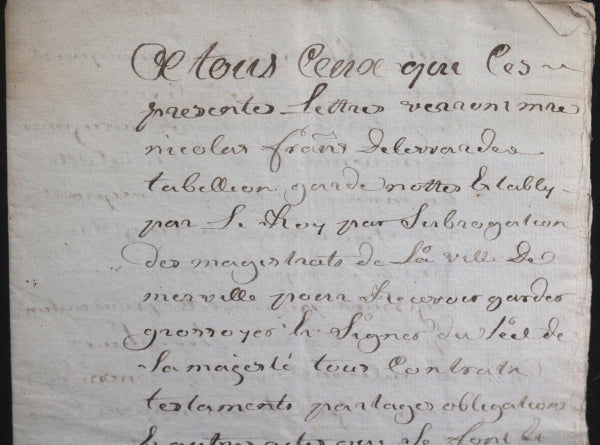 A tous Ceux qui Ces
presentes Lettres verront mre
nicolas frans
tabellion garde nottes Etably
par Le Roy par Subrogation
des magistrats de La ville De
merville pour Recevoir garder
grossoyer & Signer du Scel de
Sa majesté tous Contrats
testaments partages obligations
& autres actes qui se font